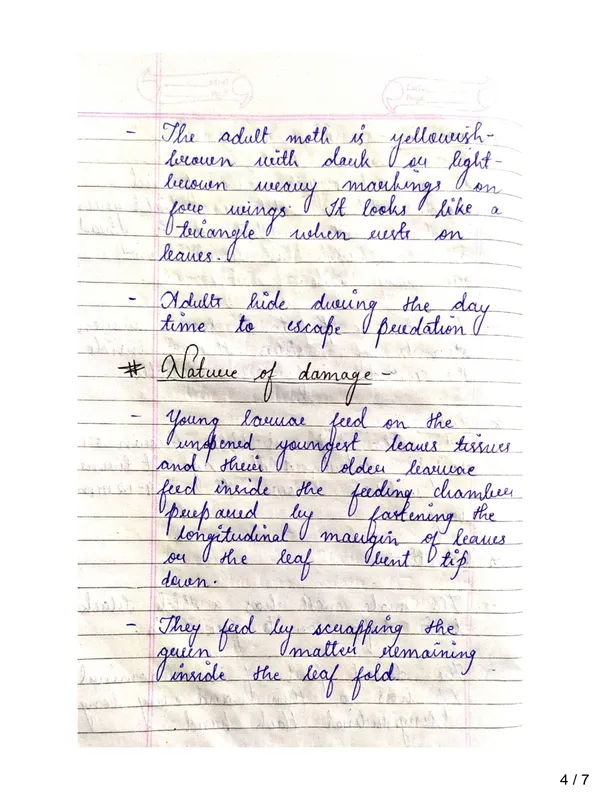 - The adult moth is yellowish-
brown with dark or light-
brown weavy markings on
fore wings. It looks like a
triangle when rests on
leaves.
- Adults hide during the day
time to escape predation
# Nature of damage -
- Young larvae feed on the
unopened youngest leaves tissues
and their older learvae
feed inside the feeding chamber
prepared by fastening the
longitudinal margin of leaves
or the leaf bent tip
down.
- They feed by scrapping the
green matter remaining
inside the leaf fold.
4 / 7